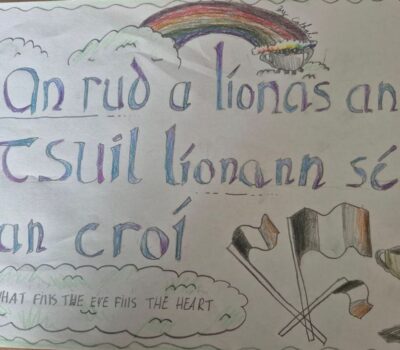 An rud a líonas an
tsuil líonann sé
an croí
WHAT FILLS THE EYE FILLS THE HEART